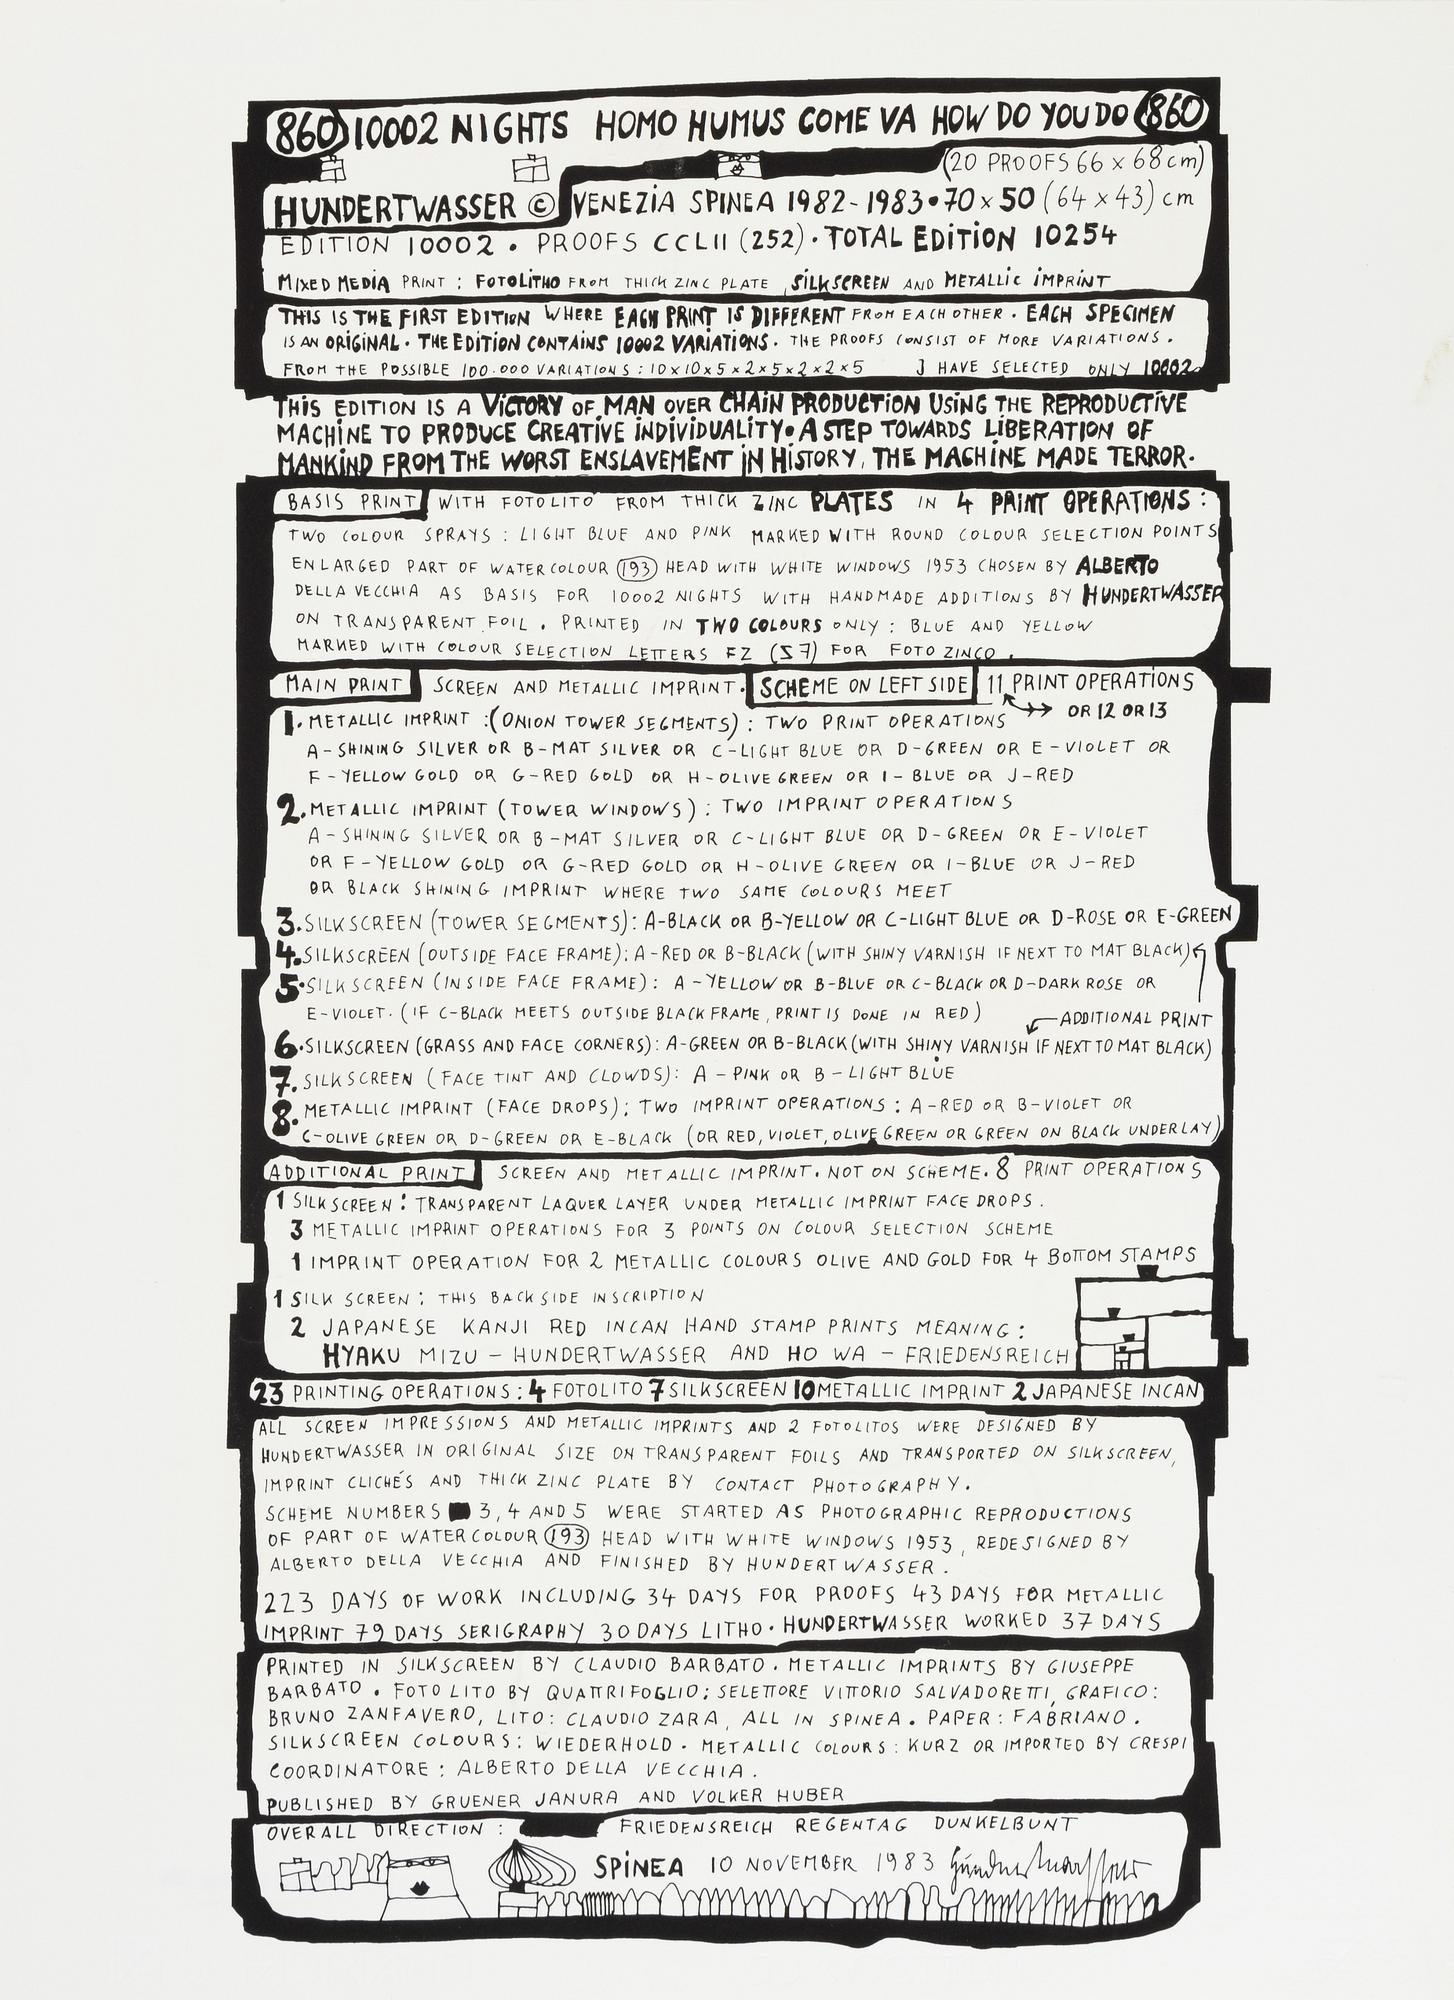 860 10002 NIGHTS HOMO HUMUS COME VA HOW DO YOU DO 860
(20 PROOFS 66 x 68 cm)
HUNDERTWASSER © VENEZIA SPINEA 1982-1983 • 70 x 50 (64 x 43) cm
EDITION 10002 • PROOFS CCLII (252) • TOTAL EDITION 10254
MIXED MEDIA PRINT : FOTOLITHO FROM THICK ZINC PLATE, SILKSCREEN AND METALLIC IMPRINT
THIS IS THE FIRST EDITION WHERE EACH PRINT IS DIFFERENT FROM EACH OTHER • EACH SPECIMEN
IS AN ORIGINAL • THE EDITION CONTAINS 10002 VARIATIONS • THE PROOFS CONSIST OF MORE VARIATIONS .
FROM THE POSSIBLE 100.000 VARIATIONS : 10x10x5x2x5x2x2x5 J HAVE SELECTED ONLY 10002
THIS EDITION IS A VICTORY OF MAN OVER CHAIN PRODUCTION USING THE REPRODUCTIVE
MACHINE TO PRODUCE CREATIVE INDIVIDUALITY • A STEP TOWARDS LIBERATION OF
MANKIND FROM THE WORST ENSLAVEMENT IN HISTORY, THE MACHINE MADE TERROR.
BASIS PRINT WITH FOTOLITO FROM THICK ZINC PLATES IN 4 PRINT OPERATIONS :
TWO COLOUR SPRAYS : LIGHT BLUE AND PINK MARKED WITH ROUND COLOUR SELECTION POINTS
ENLARGED PART OF WATERCOLOUR (193) HEAD WITH WHITE WINDOWS 1953 CHOSEN BY ALBERTO
DELLA VECCHIA AS BASIS FOR 10002 NIGHTS WITH HANDMADE ADDITIONS BY HUNDERTWASSER
ON TRANSPARENT FOIL . PRINTED IN TWO COLOURS ONLY : BLUE AND YELLOW
MARKED WITH COLOUR SELECTION LETTERS FZ (S7) FOR FOTO ZINCO .
MAIN PRINT SCREEN AND METALLIC IMPRINT • SCHEME ON LEFT SIDE 11 PRINT OPERATIONS
OR 12 OR 13
1. METALLIC IMPRINT : (ONION TOWER SEGMENTS) : TWO PRINT OPERATIONS
A-SHINING SILVER OR B-MAT SILVER OR C-LIGHT BLUE OR D-GREEN OR E-VIOLET OR
F-YELLOW GOLD OR G-RED GOLD OR H-OLIVE GREEN OR I-BLUE OR J-RED
2. METALLIC IMPRINT (TOWER WINDOWS) : TWO IMPRINT OPERATIONS
A-SHINING SILVER OR B-MAT SILVER OR C-LIGHT BLUE OR D-GREEN OR E-VIOLET
OR F-YELLOW GOLD OR G-RED GOLD OR H-OLIVE GREEN OR I-BLUE OR J-RED
OR BLACK SHINING IMPRINT WHERE TWO SAME COLOURS MEET
3. SILKSCREEN (TOWER SEGMENTS): A-BLACK OR B-YELLOW OR C-LIGHT BLUE OR D-ROSE OR E-GREEN
4. SILKSCREEN (OUTSIDE FACE FRAME): A-RED OR B-BLACK (WITH SHINY VARNISH IF NEXT TO MAT BLACK)
5. SILKSCREEN (INSIDE FACE FRAME): A-YELLOW OR B-BLUE OR C-BLACK OR D-DARK ROSE OR
E-VIOLET. (IF C-BLACK MEETS OUTSIDE BLACK FRAME, PRINT IS DONE IN RED)
ADDITIONAL PRINT
6. SILKSCREEN (GRASS AND FACE CORNERS): A-GREEN OR B-BLACK (WITH SHINY VARNISH IF NEXT TO MAT BLACK)
7. SILKSCREEN (FACE TINT AND CLOWDS): A-PINK OR B-LIGHT BLUE
8. METALLIC IMPRINT (FACE DROPS); TWO IMPRINT OPERATIONS : A-RED OR B-VIOLET OR
C-OLIVE GREEN OR D-GREEN OR E-BLACK (OR RED, VIOLET, OLIVE GREEN OR GREEN ON BLACK UNDERLAY)
ADDITIONAL PRINT SCREEN AND METALLIC IMPRINT. NOT ON SCHEME. 8 PRINT OPERATIONS
1 SILKSCREEN : TRANSPARENT LAQUER LAYER UNDER METALLIC IMPRINT FACE DROPS .
3 METALLIC IMPRINT OPERATIONS FOR 3 POINTS ON COLOUR SELECTION SCHEME
1 IMPRINT OPERATION FOR 2 METALLIC COLOURS OLIVE AND GOLD FOR 4 BOTTOM STAMPS
1 SILK SCREEN : THIS BACKSIDE INSCRIPTION
2 JAPANESE KANJI RED INCAN HAND STAMP PRINTS MEANING :
HYAKU MIZU - HUNDERTWASSER AND HO WA - FRIEDENSREICH
23 PRINTING OPERATIONS : 4 FOTOLITO 7 SILKSCREEN 10 METALLIC IMPRINT 2 JAPANESE INCAN
ALL SCREEN IMPRESSIONS AND METALLIC IMPRINTS AND 2 FOTOLITOS WERE DESIGNED BY
HUNDERTWASSER IN ORIGINAL SIZE ON TRANSPARENT FOILS AND TRANSPORTED ON SILKSCREEN,
IMPRINT CLICHÉS AND THICK ZINC PLATE BY CONTACT PHOTOGRAPHY .
SCHEME NUMBERS 3, 4 AND 5 WERE STARTED AS PHOTOGRAPHIC REPRODUCTIONS
OF PART OF WATERCOLOUR (193) HEAD WITH WHITE WINDOWS 1953, REDESIGNED BY
ALBERTO DELLA VECCHIA AND FINISHED BY HUNDERTWASSER .
223 DAYS OF WORK INCLUDING 34 DAYS FOR PROOFS 43 DAYS FOR METALLIC
IMPRINT 79 DAYS SERIGRAPHY 30 DAYS LITHO • HUNDERTWASSER WORKED 37 DAYS
PRINTED IN SILKSCREEN BY CLAUDIO BARBATO . METALLIC IMPRINTS BY GIUSEPPE
BARBATO . FOTOLITO BY QUATTRIFOGLIO ; SELETTORE VITTORIO SALVADORETTI, GRAFICO :
BRUNO ZANFAVERO, LITO : CLAUDIO ZARA, ALL IN SPINEA . PAPER : FABRIANO .
SILKSCREEN COLOURS : WIEDERHOLD . METALLIC COLOURS : KURZ OR IMPORTED BY CRESPI
COORDINATORE : ALBERTO DELLA VECCHIA .
PUBLISHED BY GRUENER JANURA AND VOLKER HUBER
OVERALL DIRECTION : FRIEDENSREICH REGENTAG DUNKELBUNT
SPINEA 10 NOVEMBER 1983 Hundertwasser